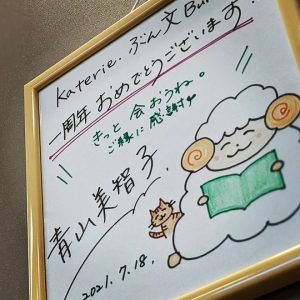 Katerie. ぶん文Bun
一周年 おめでとうございます!
きっと 会おうね。
ご縁に感謝
青山美智子
2021.7.18.